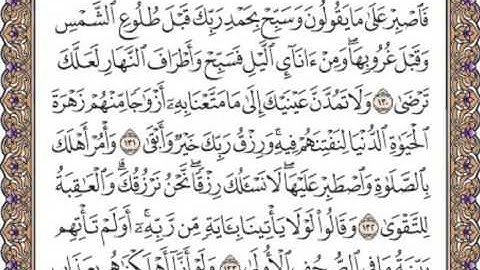 فَٱصۡبِرۡ عَلَىٰ مَا يَقُولُونَ وَسَبِّحۡ بِحَمۡدِ رَبِّكَ قَبۡلَ طُلُوعِ ٱلشَّمۡسِ
وَقَبۡلَ غُرُوبِهَاۖ وَمِنۡ ءَانَآيِٕ ٱلَّيۡلِ فَسَبِّحۡ وَأَطۡرَافَ ٱلنَّهَارِ لَعَلَّكَ
تَرۡضَىٰ ١٣٠ وَلَا تَمُدَّنَّ عَيۡنَيۡكَ إِلَىٰ مَا مَتَّعۡنَا بِهِۦٓ أَزۡوَٰجٗا مِّنۡهُمۡ زَهۡرَةَ
ٱلۡحَيَوٰةِ ٱلدُّنۡيَا لِنَفۡتِنَهُمۡ فِيهِۚ وَرِزۡقُ رَبِّكَ خَيۡرٞ وَأَبۡقَىٰ ١٣١ وَأۡمُرۡ أَهۡلَكَ
بِٱلصَّلَوٰةِ وَٱصۡطَبِرۡ عَلَيۡهَاۖ لَا نَسۡـَٔلُكَ رِزۡقٗاۖ نَّحۡنُ نَرۡزُقُكَۗ وَٱلۡعَٰقِبَةُ
لِلتَّقۡوَىٰ ١٣٢ وَقَالُواْ لَوۡلَا يَأۡتِينَا بِـَٔايَةٖ مِّن رَّبِّهِۦٓۚ أَوَلَمۡ تَأۡتِهِم
بَيِّنَةُ مَا فِي ٱلصُّحُفِ ٱلۡأُولَىٰ ١٣٣ وَلَوۡ أَنَّآ أَهۡلَكۡنَٰهُم بِعَذَابٖ